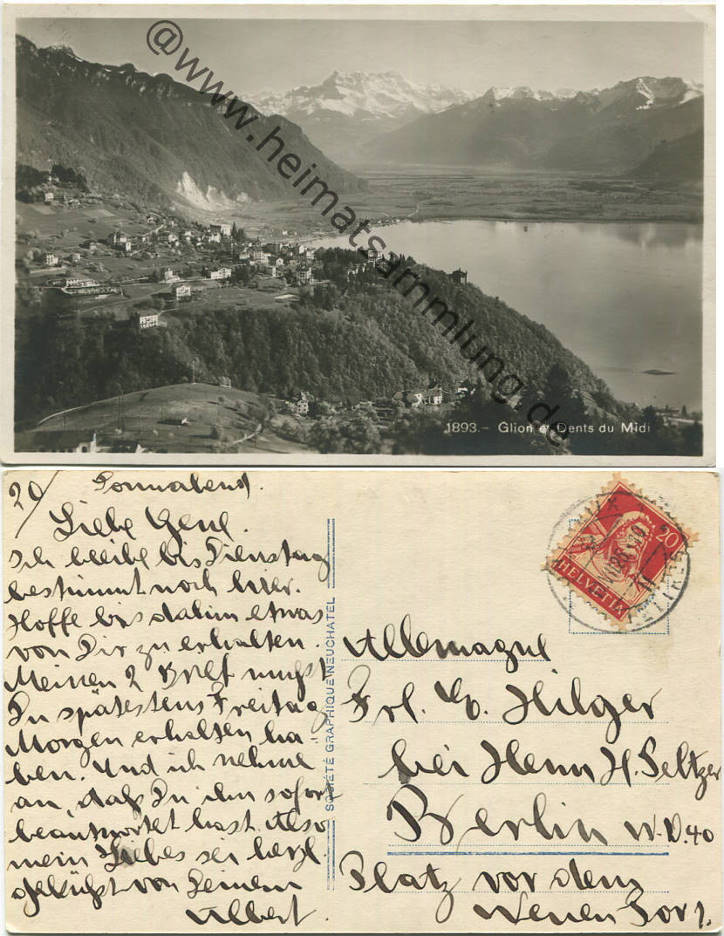 @www.heimatsammlung.de
1893.- Glion et Dents du Midi
20/ Sonnabend.
Liebe Gene.
Ich bleibe bis Dienstag
bestimmt noch hier.
Hoffe bis dahin etwas
von Dir zu erhalten.
Meinen 2 Brief mußt
Du spätestens Freitag
Morgen erhalten ha
ben. Und ich nehme
an, daß Du ihn sofort
beantwortet hast. Also
mein Liebes sei herzl.
geküßt von Deinem
Albert.
SOCIÉTÉ GRAPHIQUE NEUCHATEL
20
HELVETIA
Allemagne
Frl. G. Hilger
bei Herrn H. Seltzer
Berlin N.W.40
Platz vor dem
Neuen Tor 1.